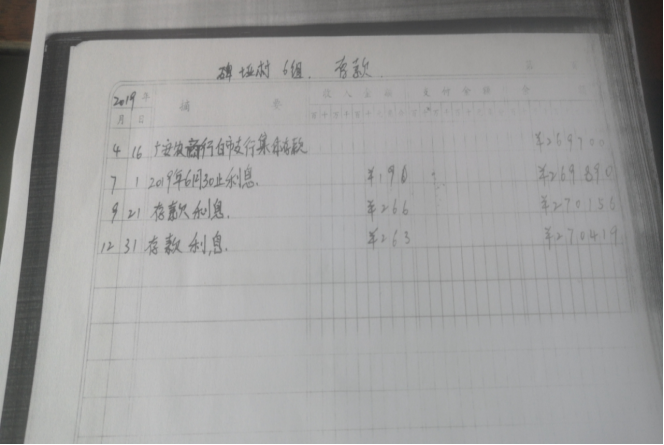 碑垭村 6组. 存款.
2019年 摘 要 收入金额 支付金额 余
月 日
4 16 ¥269700
7 1 2019年6月30止利息. ¥196 ¥269890
9 21 存款利息. ¥266 ¥270156
12 31 存款利息. ¥263 ¥270419